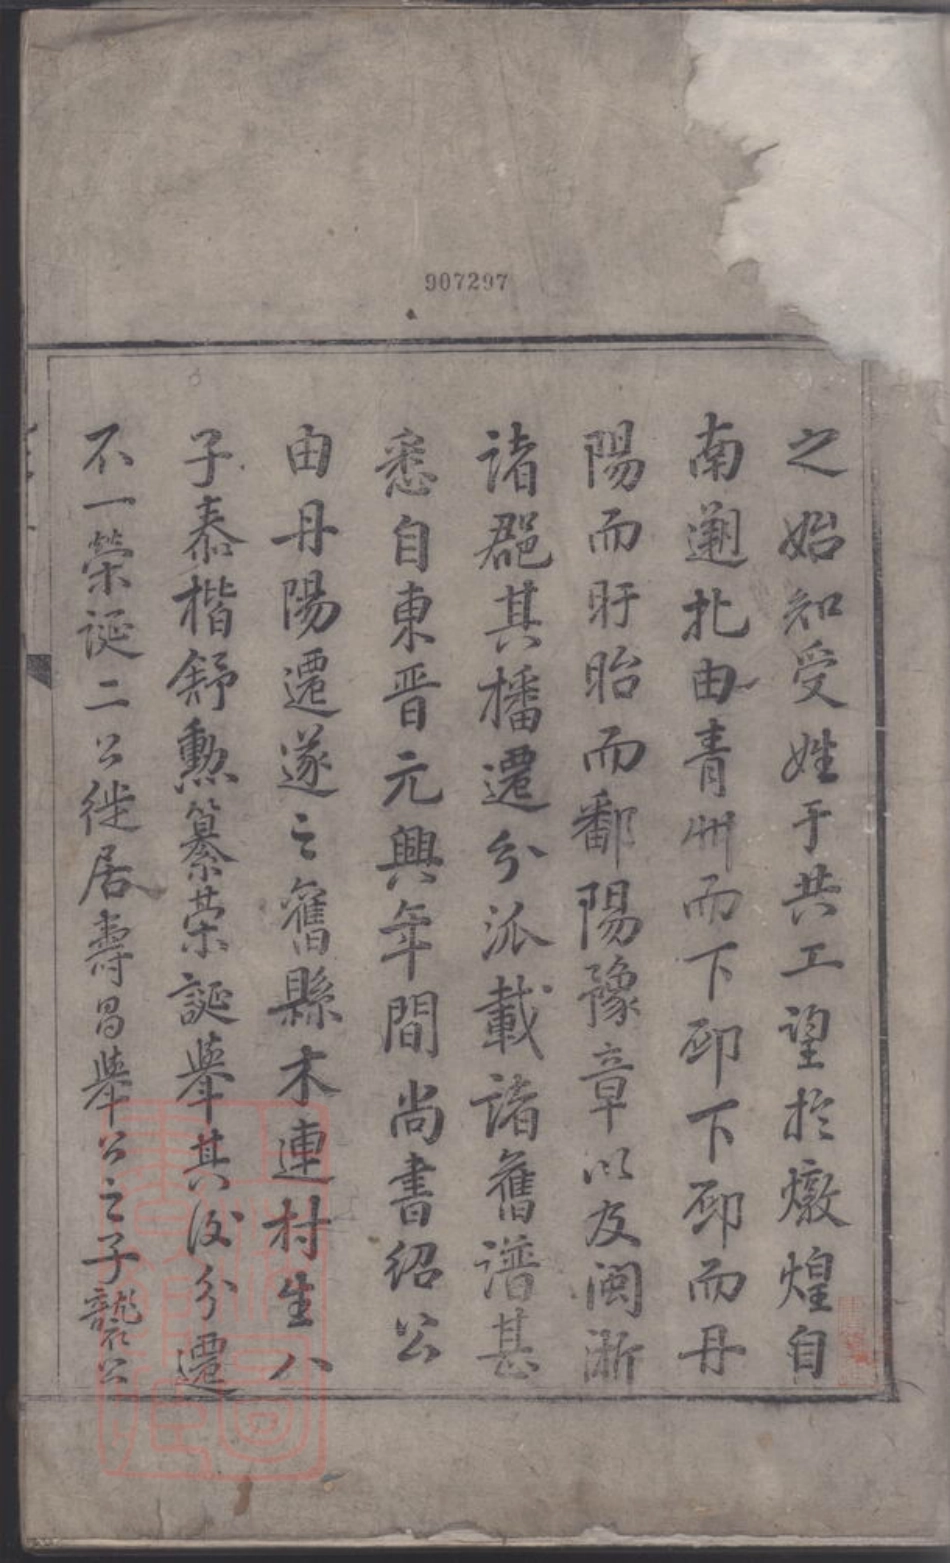 907297
之始知受姓于共工望於燉煌自
南遡北由青州而下邳下邳而丹
陽而盱眙而鄱陽豫章以及閩浙
諸郡其播遷分派載諸舊譜甚
悉自東晋元興年間尚書紹公
由丹陽遷遂之舊縣木連村生八
子泰楷舒勲纂榮誕犖其後分遷
不一榮誕二公徙居壽昌犖公之子龔公